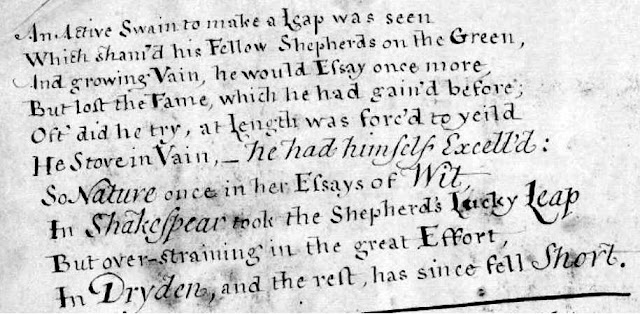 An Active Swain to make a Leap was seen
Which sham'd his Fellow Shepherds on the Green,
And growing Vain, he would Eſsay once more,
But lost the Fame, which he had gain'd before;
Oft' did he try, at Length was forc'd to yeild
He Stove in Vain, — he had himself Excell'd:
So Nature once in her Eſsays of Wit,
In Shakeſpear took the Shepherd's Lucky Leap
But over-straining in the great Effort,
In Dryden, and the reſt, has since fell Short.